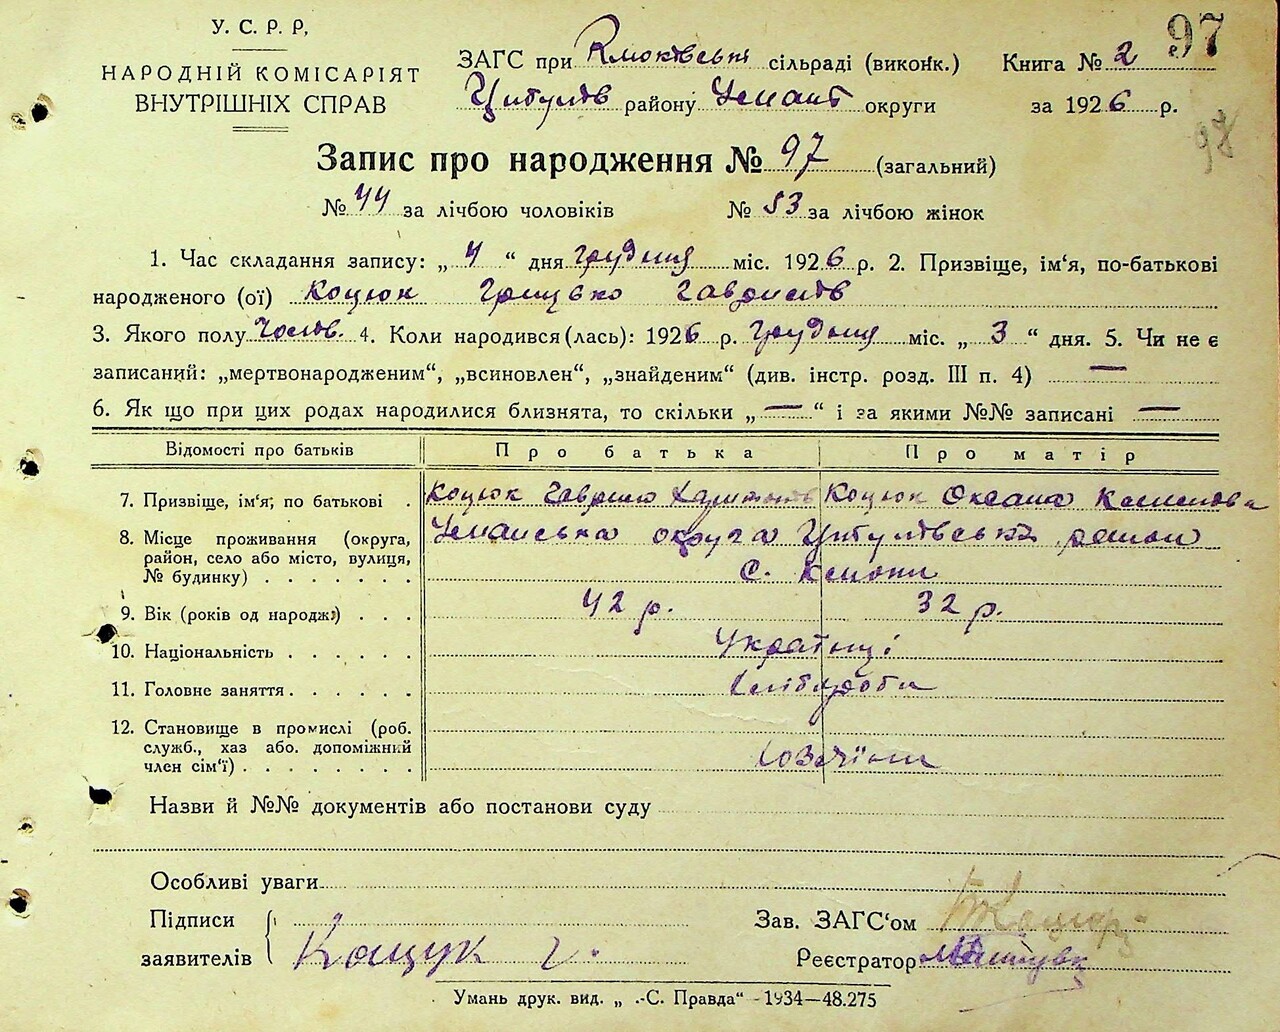 97
У. С. Р. Р.
НАРОДНІЙ КОМІСАРІЯТ
ВНУТРІШНІХ СПРАВ
ЗАГС при сільраді (виконк.) Книга № 2
Цибулів району Умані округи за 1926 р.
98
Запис про народження № 97 (загальний)
№ 44 за лічбою чоловіків № 53 за лічбою жінок
1. Час складання запису: „ 4 “ дня грудня міс. 1926 р. 2. Призвіще, ім‘я, по-батькові
народженого (ої) Коцюк Грицько Гаврилів
3. Якого полу Чолов. 4. Коли народився(лась): 1926 р. Грудня міс. „ 3 “ дня. 5. Чи не є
записаний: „мертвонародженим“, „всиновлен“, „знайденим“ (див. інстр. розд. III п. 4) —
6. Як що при цих родах народилися близнята, то скільки „ — “ і за якими №№ записані —
Відомості про батьків Про батька Про матір
7. Призвіще, ім‘я, по батькові . Коцюк Гаврило Харитонів Коцюк Оксана
8. Місце проживання (округа, Уманська округа Цибулівський район
район, село або місто, вулиця,
№ будинку) . . . . . . . с.
9. Вік (років од народж.) . . . 42 р. 32 р.
10. Національність . . . . . . Українці
11. Головне заняття . . . . . . Хліборби
12. Становище в промислі (роб.
служб., хаз або. допоміжний
член сім‘ї) . . . . . . . Хозяїни
Назви й №№ документів або постанови суду
Особливі уваги
Підписи Зав. ЗАГС‘ом
заявителів Коцюк Г. Реєстратор
Умань друк. вид. „ .-С. Правда“ -1934—48.275